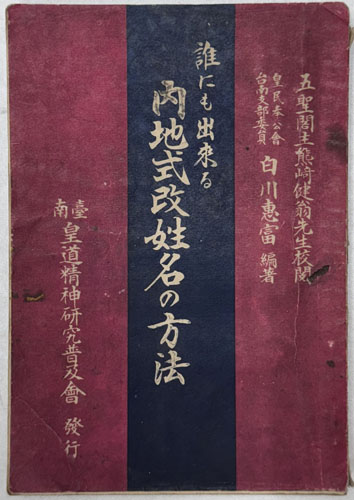 五聖閣主熊﨑健翁先生校閲
皇民奉公會
台南支部委員
白川惠富 編著
誰にも出來る
内地式改姓名の方法
臺南
皇道精神研究普及會 發行